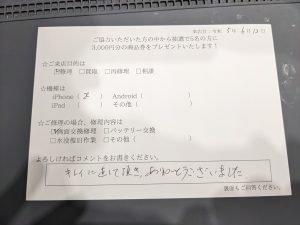 来店日：令和 5年 6月 12日
ご協力いただいた方の中から抽選で5名の方に
3,000円分の商品券をプレゼントいたします！
☆ご来店目的は
☑修理 □買取 □再修理 □相談
☆機種は
iPhone（ ） Android（ ）
iPad（ ） その他（ ）
☆ご修理の場合、修理内容は
☑画面交換修理 □バッテリー交換
□水没復旧作業 □その他（ ）
よろしければコメントをお書きください。
キレイに直して頂き、ありがとうございました
裏面もご回答ください。